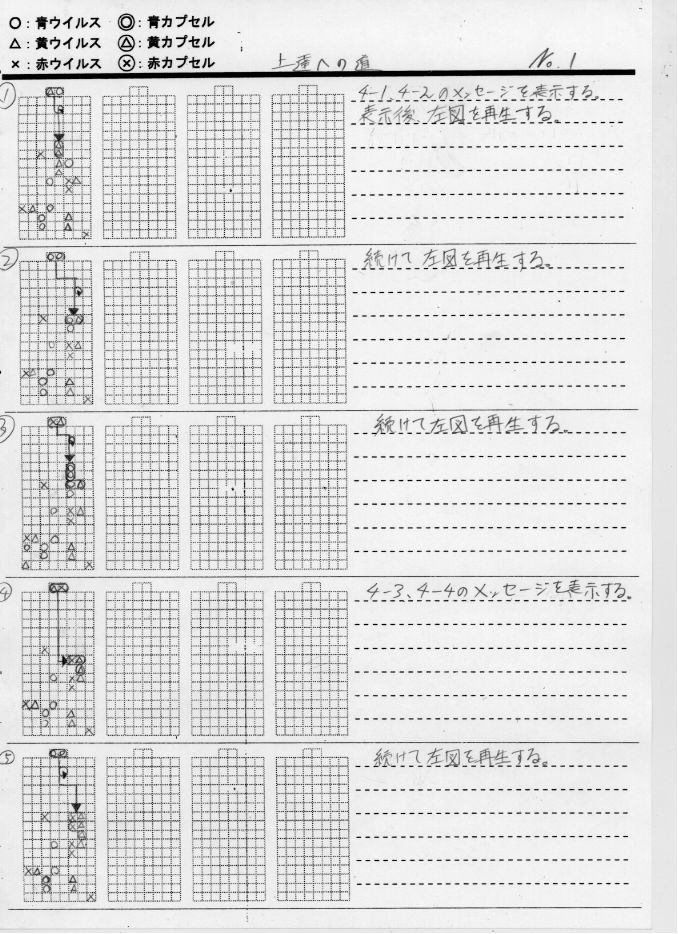 ○：青ウイルス ◎：青カプセル
△：黄ウイルス Ⓐ：黄カプセル
×：赤ウイルス ⓧ：赤カプセル
上達への道 No.1
① 4-1、4-2のメッセージを表示する。
表示後、左図を再生する。
② 続けて左図を再生する。
③ 続けて左図を再生する。
④ 4-3、4-4のメッセージを表示する。
⑤ 続けて左図を再生する。